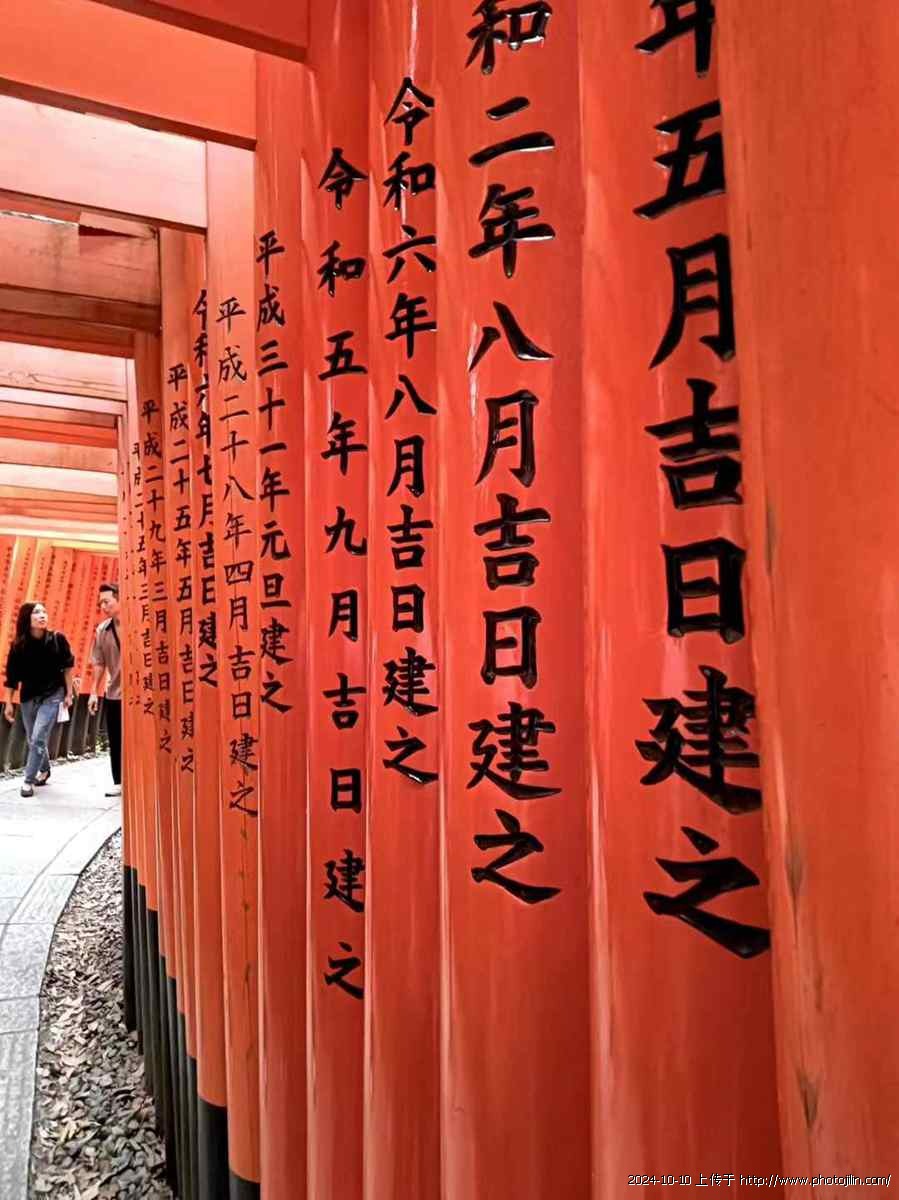 年五月吉日建之
和二年八月吉日建之
令和六年八月吉日建之
令和五年九月吉日建之
平成三十一年元旦建之
平成二十八年四月吉日建之
令和六年七月吉日建之
平成二十五年五月吉日建之
平成二十九年三月吉日建之
2024-10-10 上传于 http://www.photojilin.com/